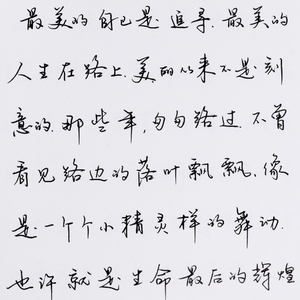 最美的自己是追寻.最美的
人生在路上.美的从来不是刻
意的.那些年,匆匆路过.不曾
看见路边的落叶飘飘.像
是一个个小精灵样的舞动.
也许就是生命最后的辉煌